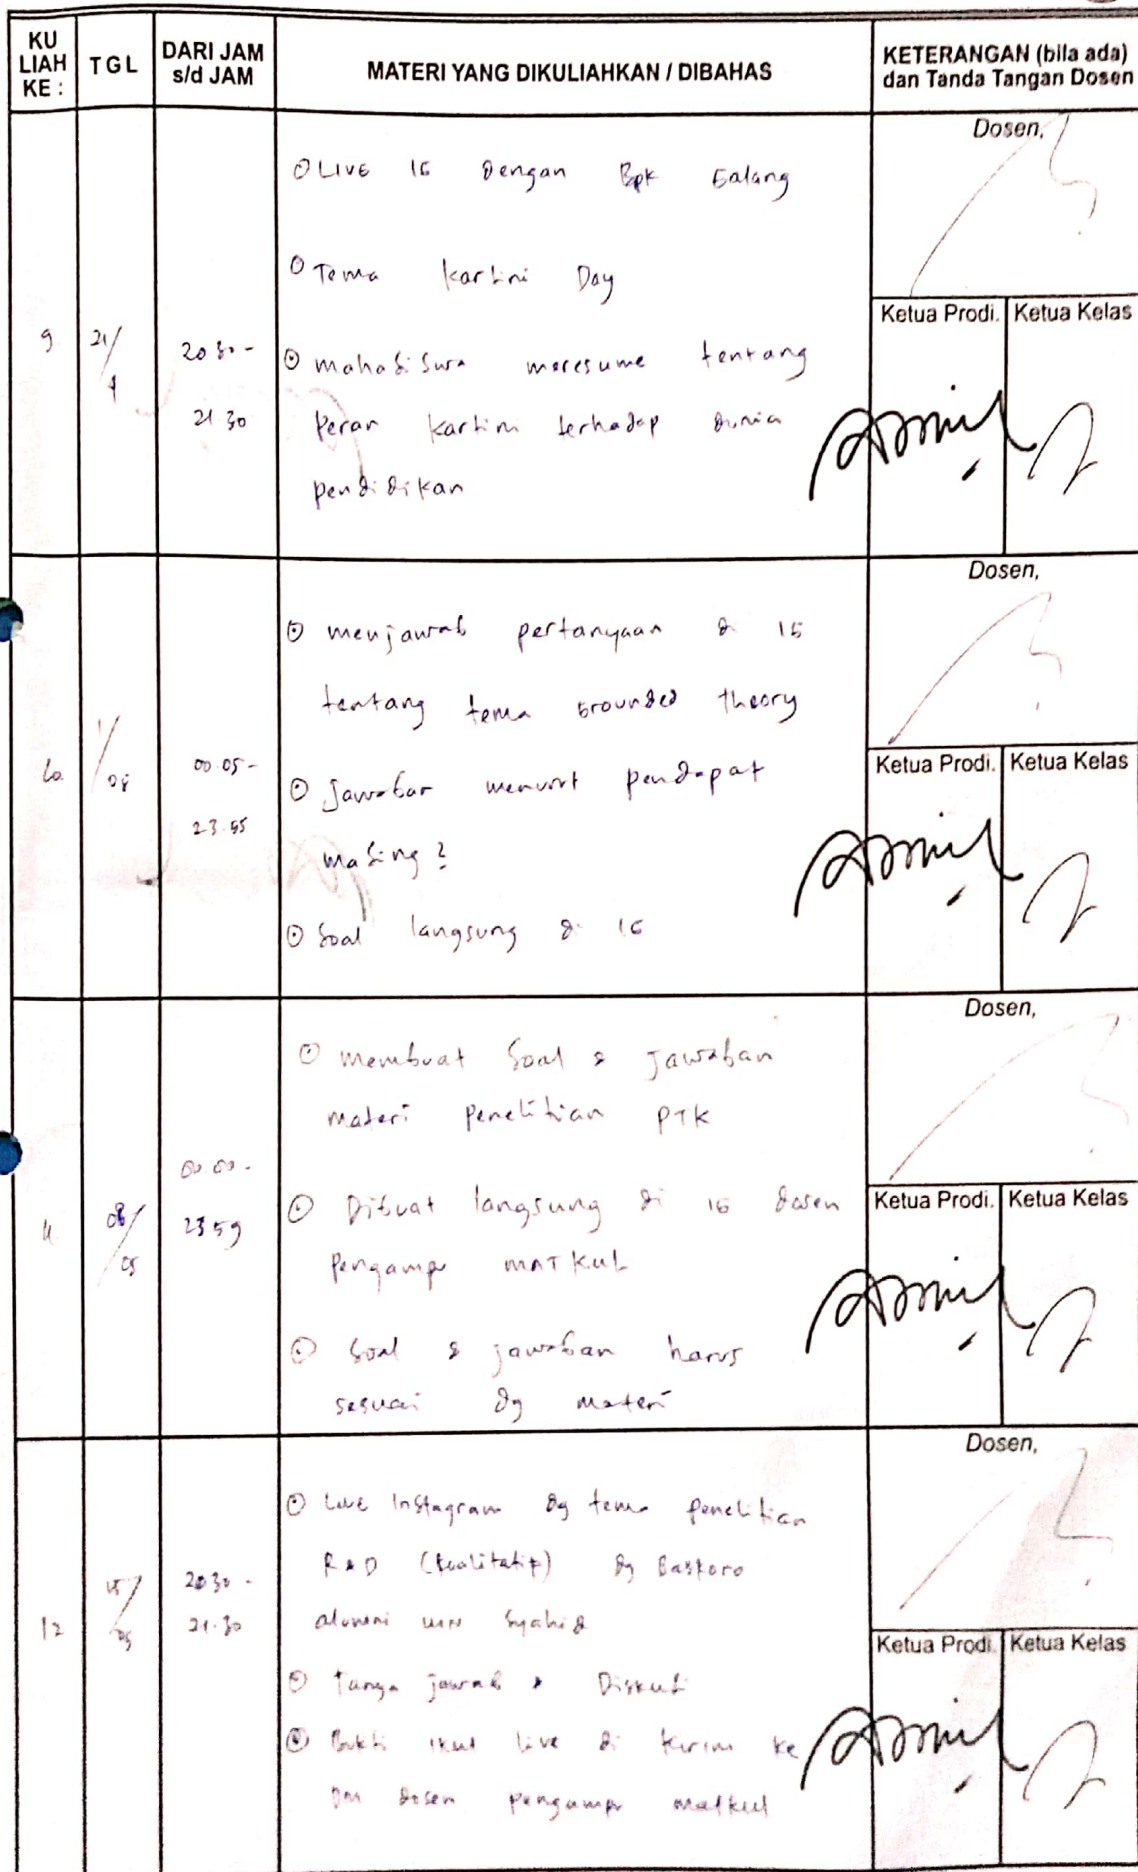 KU LIAH KE :
TGL
DARI JAM s/d JAM
MATERI YANG DIKULIAHKAN / DIBAHAS
KETERANGAN (bila ada) dan Tanda Tangan Dosen
9
21/4
20 30 -
21 30
Live IG Dengan Bpk Galang
Tema Kartini Day
mahasiswa meresume tentang
Peran Kartini terhadap dunia
pendidikan
Dosen,
Ketua Prodi.
Ketua Kelas
10
1/05
00.05 -
23.55
menjawab pertanyaan di IG
tentang tema Grounded theory
Jawaban menurut pendapat
masing2
Soal langsung di IG
Dosen,
Ketua Prodi.
Ketua Kelas
11
08/05
00.00 -
23 59
membuat Soal & Jawaban
materi penelitian PTK
Dibuat langsung di IG dosen
pengampu MATKUL
Soal & jawaban harus
sesuai dg materi
Dosen,
Ketua Prodi.
Ketua Kelas
12
15/05
20 30 -
21.30
Live Instagram dg tema penelitian
R&D (Kualitatif) dg Baskoro
alumni UIN Syahid
Tanya jawab & Diskusi
Bukti ikut live di kirim ke
DM dosen pengampu matkul
Dosen,
Ketua Prodi.
Ketua Kelas